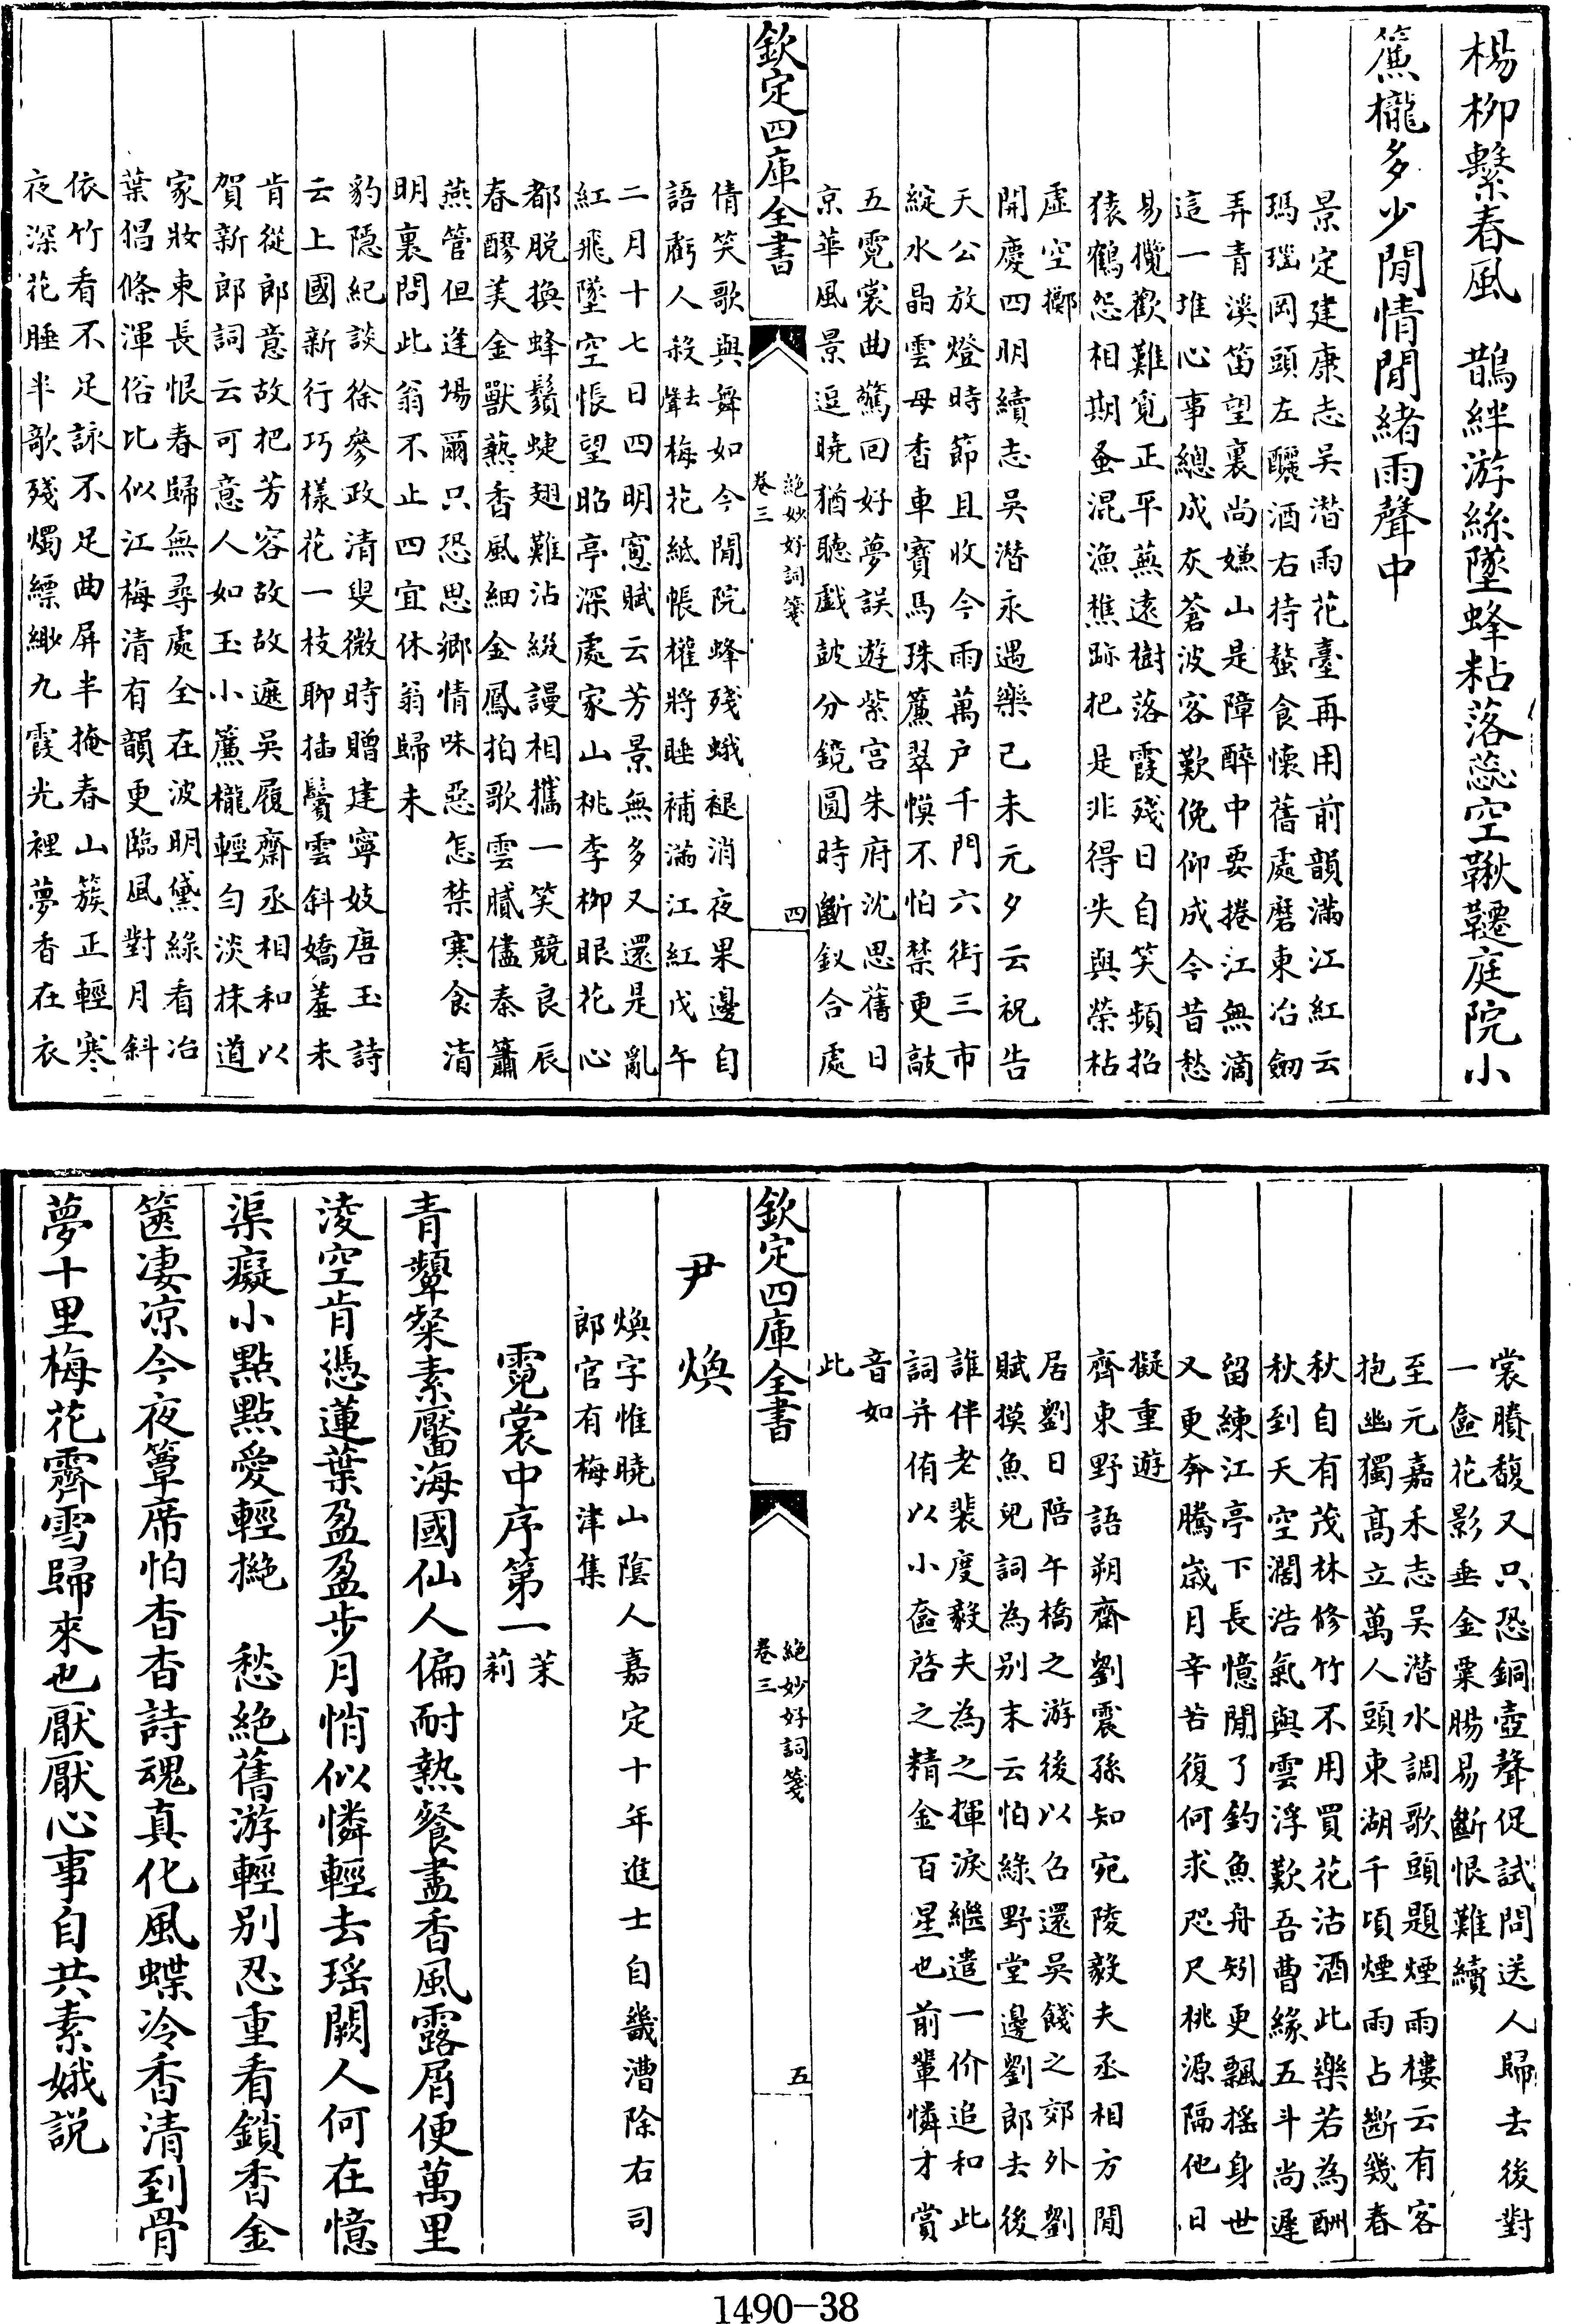 楊柳繫春風　鵲絆游絲墜蜂粘落蕊空鞦韆庭院小
簾櫳多少閒情閒緒雨聲中
景定建康志吳潛雨花臺再用前韻滿江紅云
瑪瑙岡頭左釃酒右持螯食懷舊處磨東冶劒
弄青溪笛望裏尚嫌山是障醉中要捲江無滴
這一堆心事總成灰蒼波客歎俛仰成今昔愁
易攬歡難覓正平蕪遠樹落霞殘日自笑頻招
猿鶴怨相期蚤混漁樵跡把是非得失與榮枯
虛空擲
開慶四明續志吳潛永遇樂己未元夕云祝告
天公放燈時節且收今雨萬户千門六街三市
綻水晶雲母香車寶馬珠簾翠幙不怕禁更敲
五霓裳曲驚回好夢誤遊紫宫朱府沈思舊日
京華風景逗曉猶聽戲鼓分鏡圓時斷釵合處
欽定四庫全書
絶妙好詞箋
卷三
四
倩笑歌與舞如今閒院蜂殘蛾褪消夜果邊自
語虧人殺壽梅花紙帳權將睡補滿江紅戊午
二月十七日四明窻賦云芳景無多又還是亂
紅飛墜空悵望昭亭深處家山桃李柳眼花心
都脱換蜂鬚蜨翅難沾綴謾相攜一笑競良辰
春醪美金獸爇香風細金鳳拍歌雲膩儘秦簫
燕管但逢場爾只恐思鄉情味惡怎禁寒食清
明裏問此翁不止四宜休翁歸未
豹隱紀談徐參政清叟微時贈建寧妓唐玉詩
云上國新行巧様花一枝聊插鬢雲斜嬌羞未
肯從郎意故把芳容故故遮吳履齋丞相和以
賀新郎詞云可意人如玉小簾櫳輕勻淡抹道
家妝束長恨春歸無尋處全在波明黛綠看冶
葉倡條渾俗比似江梅清有韻更臨風對月斜
依竹看不足詠不足曲屏半掩春山簇正輕寒
夜深花睡半欹殘燭縹緲九霞光裡夢香在衣
裳賸馥又只恐銅壺聲促試問送人歸去後對
一奩花影垂金粟腸易斷恨難續
至元嘉禾志吳潛水調歌頭題煙雨樓云有客
抱幽獨髙立萬人頭東湖千頃煙雨占斷幾春
秋自有茂林修竹不用買花沽酒此樂若為酬
秋到天空濶浩氣與雲浮歎吾曹緣五斗尚遲
留練江亭下長憶閒了釣魚舟矧更飄摇身世
又更奔騰歲月辛苦復何求咫尺桃源隔他日
擬重遊
齊東野語朔齋劉震孫知宛陵毅夫丞相方閒
居劉日陪午橋之游後以召還吳餞之郊外劉
賦摸魚兒詞為别末云怕綠野堂邊劉郎去後
誰伴老裴度毅夫為之揮淚繼遣一价追和此
詞并侑以小奩啓之精金百星也前輩憐才賞
音如
此
欽定四庫全書
絶妙好詞箋
卷三
五
尹　煥
煥字惟曉山隂人嘉定十年進士自畿漕除右司
郎官有梅津集
霓裳中序第一茉莉
青顰粲素靨海國仙人偏耐熱餐盡香風露屑便萬里
淩空肯憑蓮葉盈盈步月悄似憐輕去瑤闕人何在憶
渠癡小點點愛輕撧　愁絶舊游輕别忍重看鎖香金
篋凄凉今夜簟席怕杳杳詩魂真化風蝶冷香清到骨
夢十里梅花霽雪歸來也厭厭心事自共素娥説
1490-38